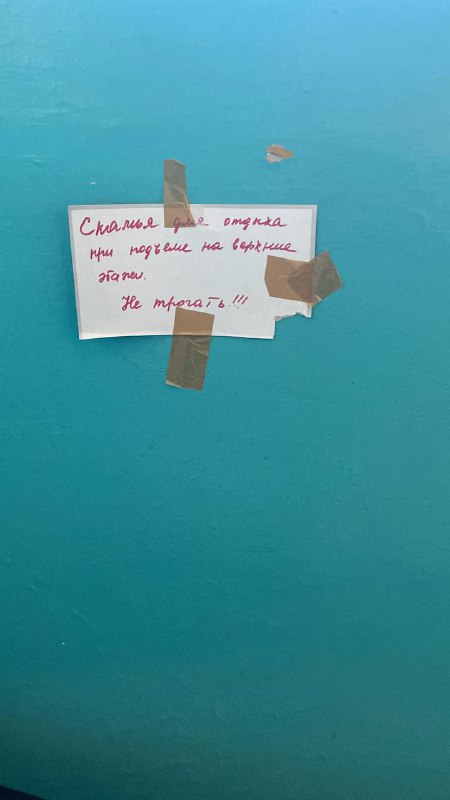 Скамья для отдыха
при подъеме на верхние
этажи.
Не трогать!!!